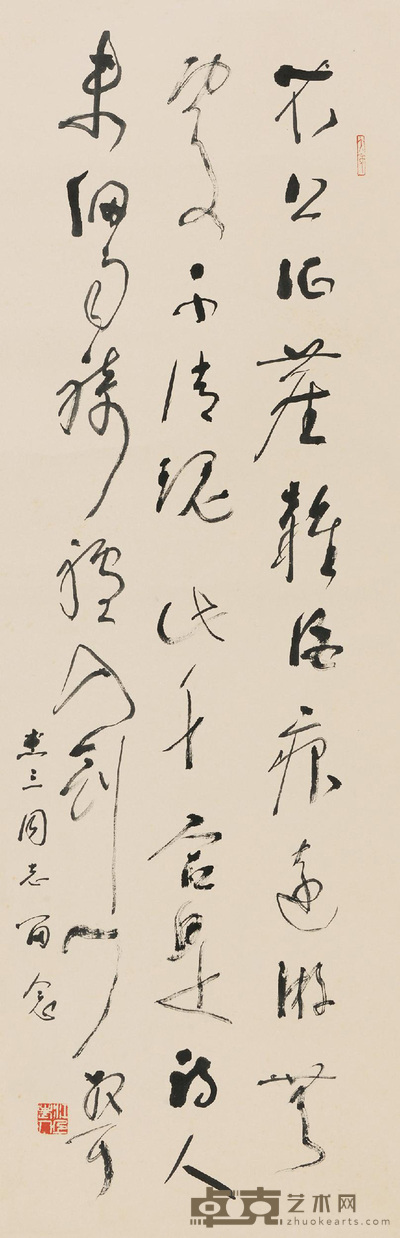 衣上征尘杂酒痕远游无
处不消魂此身合是诗人
未细雨骑驴入剑门 放翁
杰三同志留念
卓克艺术网
zhuokearts.com